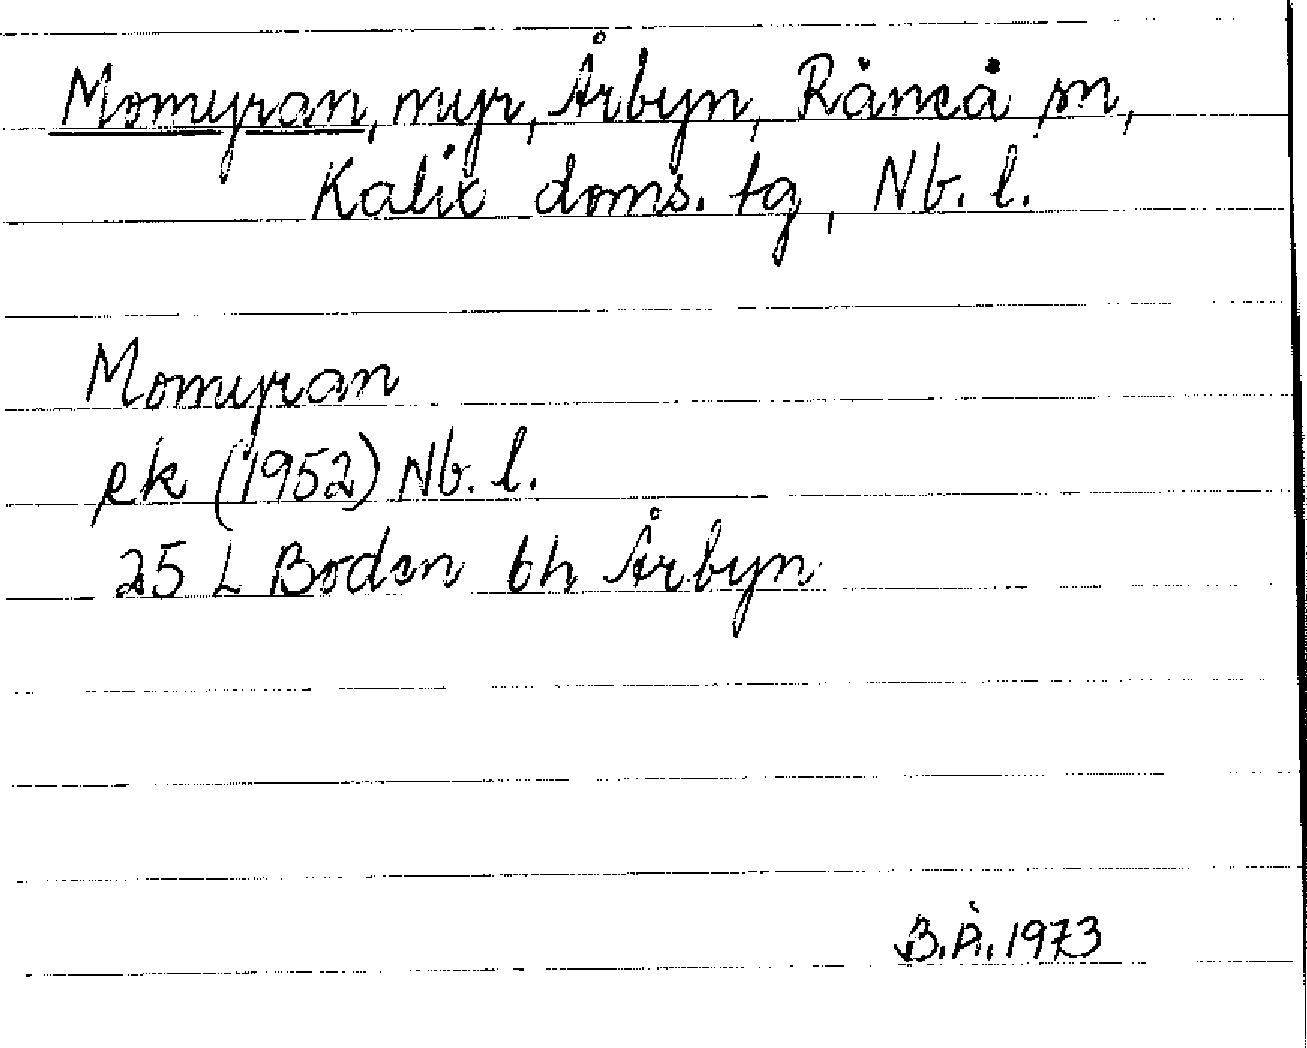 Momyran, myr, Årbyn, Råneå sn,
Kalix doms. tg, Nb. l.
Momyran
ek (1952) Nb. l.
25 L Boden 6h Årbyn
B.Å. 1973